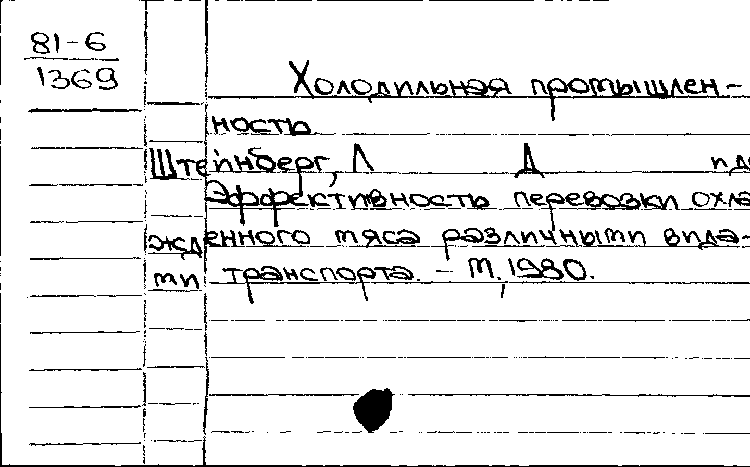 81-6
1369
Холодильная промышлен-
ность
Штейнберг, Л Д
Эффективность перевозки охла
жденного мяса различными вида-
ми транспорта. - М, 1980.